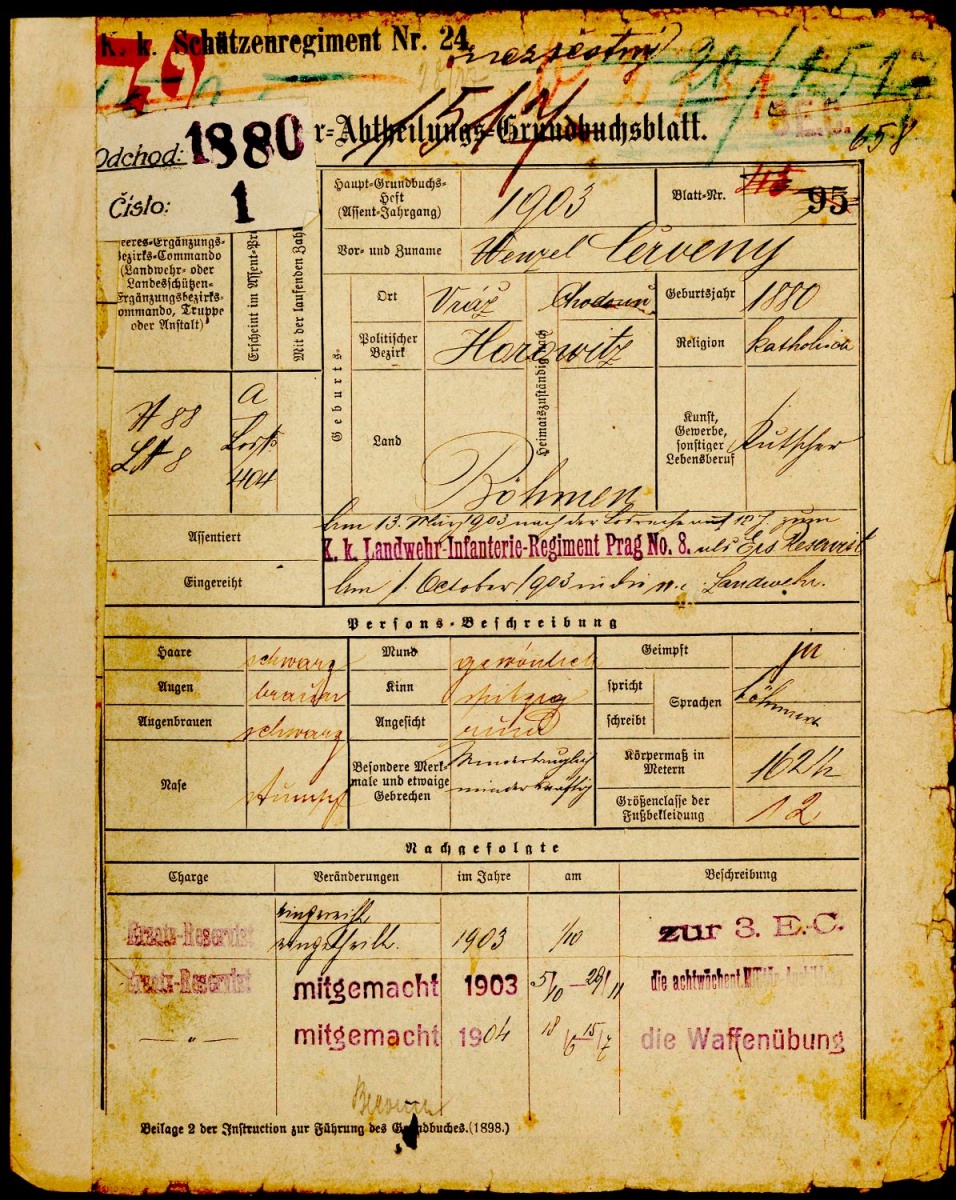 K. k. Schützenregiment Nr. 24
nezvěstný
Odchod: 1880
Číslo: 1
r=Abtheilungs=Grundbuchsblatt.
658
Haupt=Grundbuchs=
Heft
(Assent=Jahrgang)
1903
Blatt=Nr.
95
Vor= und Zuname
Wenzel Červený
eeres=Ergänzungs=
Bezirks=Commando
(Landwehr= oder
Landesschützen=
Ergänzungsbezirks=
ommando, Truppe
oder Anstalt)
Erscheint im Assent=Pr
Mit der laufenden Zahl
Geburts=
Ort
Vráž
Heimatszuständig nach
Chodoun
Geburtsjahr
1880
Politischer
Bezirk
Horowitz
Religion
katholisch
Land
Böhmen
Kunst,
Gewerbe,
sonstiger
Lebensberuf
Kutscher
A
404
Assentiert
Am 13. März 1903 nach der Losreihe auf 12 J. zum
K. k. Landwehr-Infanterie-Regiment Prag No. 8. als Ers Reservist
Eingereiht
Am 1. October 1903 in die Landwehr.
Persons=Beschreibung
Haare
schwarz
Mund
gewönlich
Geimpft
ja
Augen
braun
Kinn
spitzig
spricht
schreibt
Sprachen
böhmisch
Augenbrauen
schwarz
Angesicht
rund
Nase
stumpf
Besondere Merk=
male und etwaige
Gebrechen
Mindertauglich
minderkräftig
Körpermaß in
Metern
162½
Größenclasse der
Fußbekleidung
12
Nachgefolgte
Charge
Veränderungen
im Jahre
am
Beschreibung
Ersatz-Reservist
eingereiht
eingetheilt.
1903
1/10
zur 3. E.-C.
Ersatz-Reservist
mitgemacht
1903
5/10 — 29/11
die achtwöchent.
— „ —
mitgemacht
1904
18/6 — 15/7
die Waffenübung
Beroun
Beilage 2 der Instruction zur Führung des Grundbuches. (1898.)